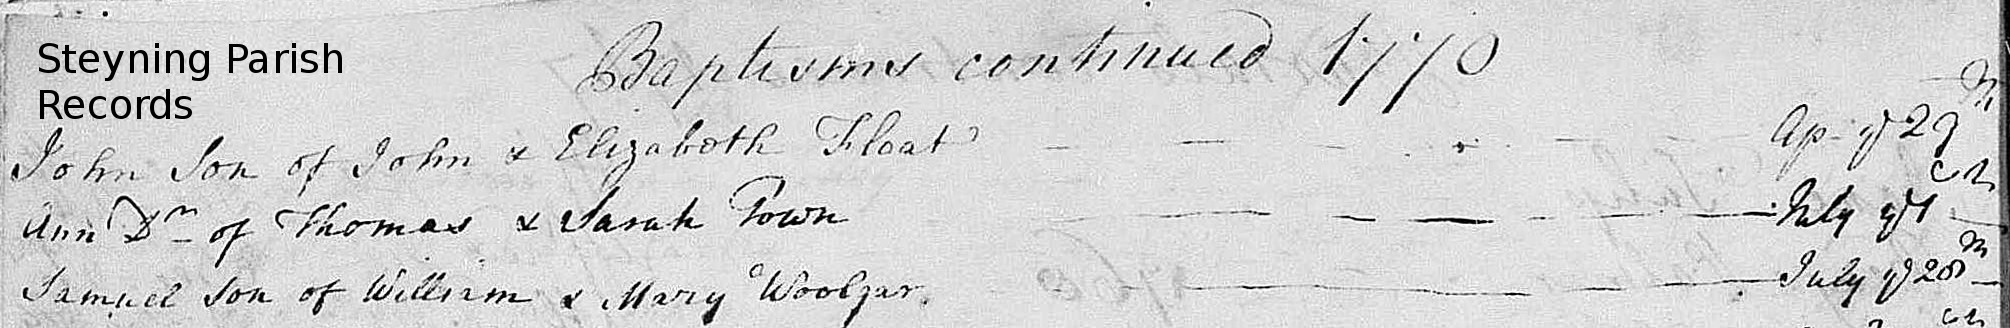 Steyning Parish
Records
Baptisms continued 1770
John Son of John & Elizabeth Float Ap. ye 29th
Ann Dr of Thomas & Sarah Town July ye 1st
Samuel Son of William & Mary Woolgar. July ye 28th